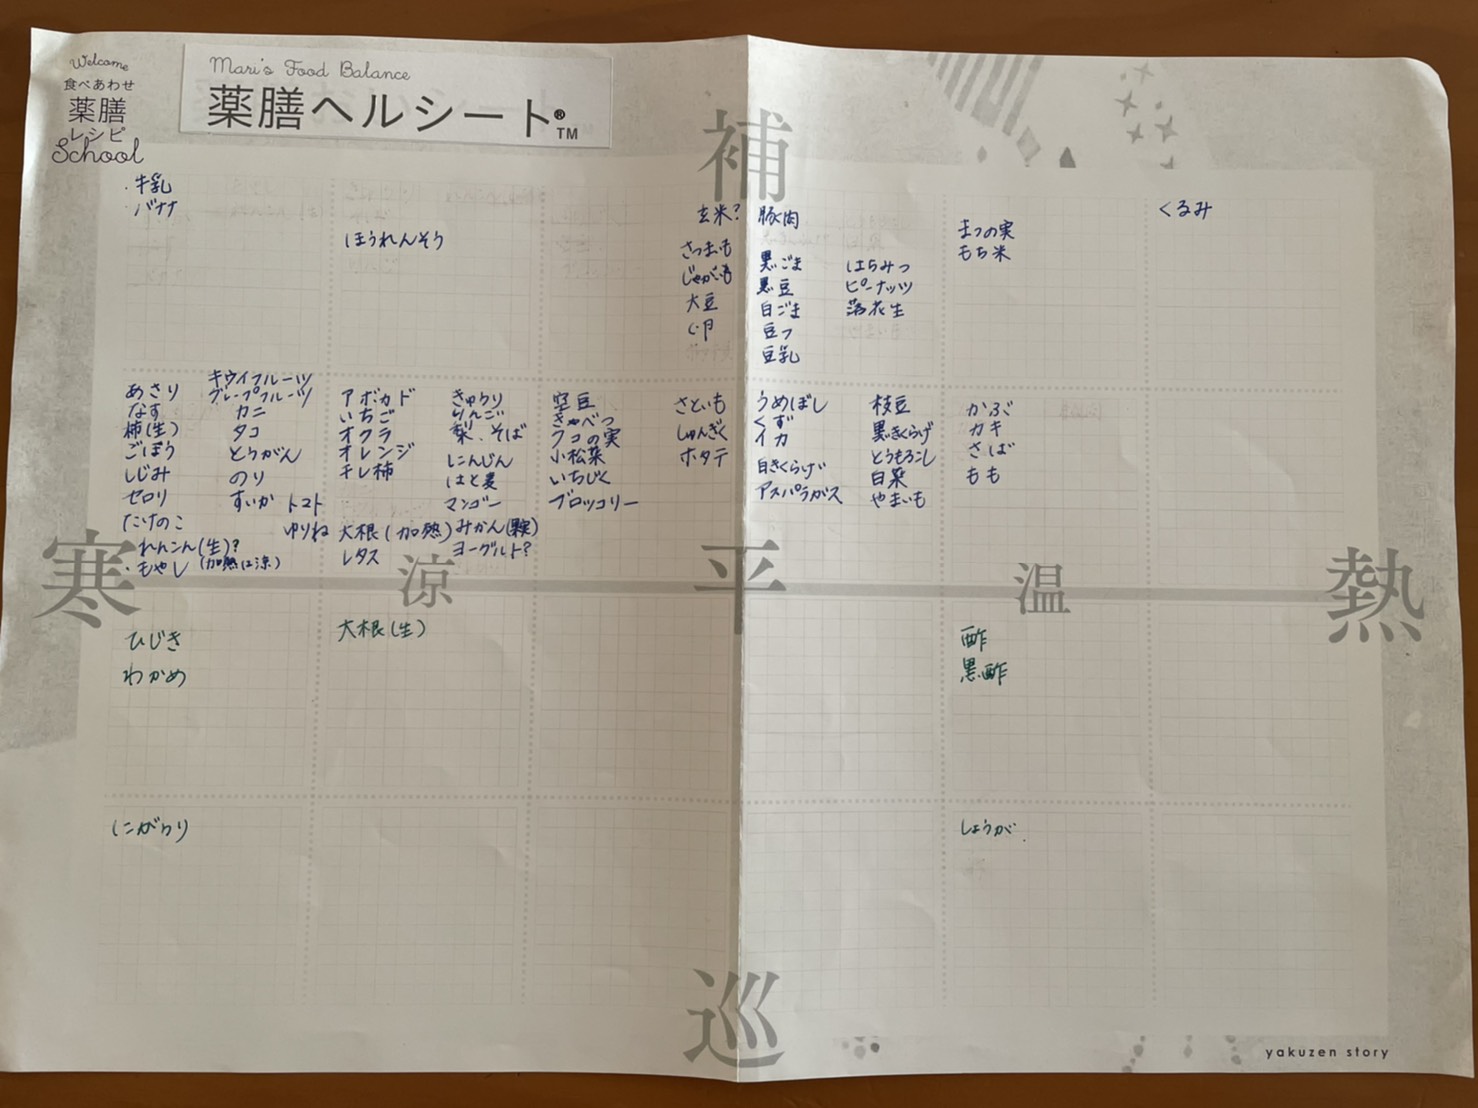 Welcome
食べあわせ
薬膳
レシピ
School
Mari's Food Balance
薬膳ヘルシート®™
補
・牛乳
・バナナ
ほうれんそう
玄米?
さつまいも
じゃがいも
大豆
卵
豚肉
黒ごま
黒豆
白ごま
豆つ
豆乳
はちみつ
ピーナッツ
落花生
まつの実
もち米
くるみ
あさり
なす
柿(生)
ごぼう
しじみ
セロリ
たけのこ
・れんこん(生)?
・もやし (加熱は涼)
キウイフルーツ
グレープフルーツ
カニ
タコ
とうがん
のり
すいか トマト
ゆりね
アボカド
いちご
オクラ
オレンジ
干し柿
大根(加熱)
レタス
きゅうり
りんご
梨、そば
にんじん
はと麦
マンゴー
みかん
ヨーグルト?
空豆
きゃべつ
クコの実
小松菜
いちじく
ブロッコリー
さといも
しゅんぎく
ホタテ
うめぼし
くず
イカ
白きくらげ
アスパラガス
枝豆
黒きくらげ
とうもろこし
白菜
やまいも
かぶ
カキ
さば
もも
寒
涼
平
温
熱
ひじき
わかめ
大根(生)
酢
黒酢
にがうり
しょうが
巡
yakuzen story